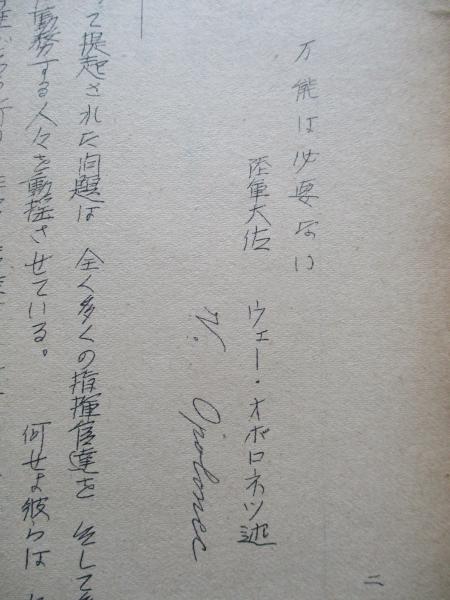 万能は必要ない
陸軍大佐 ウェー・オボロネツ述
て提起された問題は 全く多くの指揮官達を そして
勤務する人々を動揺させている。 何せよ彼らは
二